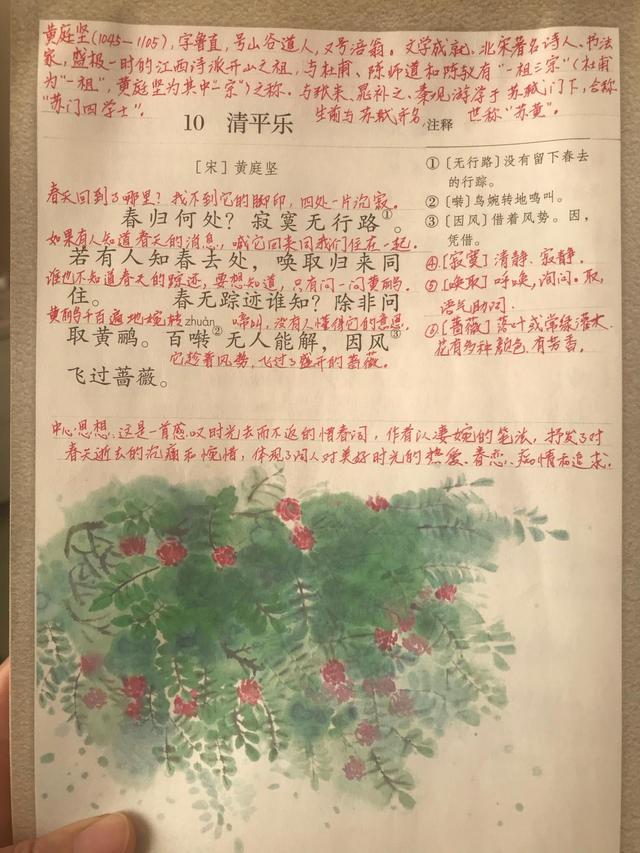 黄庭坚(1045—1105),字鲁直,号山谷道人,又号涪翁。文学成就、北宋著名诗人、书法
家,盛极一时的江西诗派开山之祖,与杜甫、陈师道和陈与义有“一祖三宗”(杜甫
为“一祖”,黄庭坚为其中“一宗”)之称。与张耒、晁补之、秦观游学于苏轼门下,合称
“苏门四学士”。
生前与苏轼齐名,世称“苏黄”。
10 清平乐
[宋]黄庭坚
春天回到了哪里?我不到它的脚印,四处一片沉寂。
春归何处?寂寞无行路①。
如果有人知道春天的消息,喊它回来同我们住在一起。
若有人知春去处,唤取归来同
谁也不知道春天的踪迹,要想知道,只有问一问黄鹂。
住。 春无踪迹谁知?除非问
黄鹂千百遍地婉转啼叫,没有人懂得它的意思,
zhuàn
取黄鹂。百啭②无人能解,因风③
它趁着风势,飞过了盛开的蔷薇。
飞过蔷薇。
注释
①[无行路]没有留下春去
的行踪。
②[啭]鸟婉转地鸣叫。
③[因风]借着风势。因,
凭借。
④[寂寞]清静,寂静.
⑤[唤取]呼唤,询问。取,
语气助词.
⑥[蔷薇]落叶或常绿灌木.
花有多种颜色,有芳香。
中心思想:这是一首感叹时光去而不返的惜春词,作者以凄婉的笔法,抒发了对
春天逝去的沉痛和惋惜,体现了词人对美好时光的热爱、眷恋、痴情和追求.